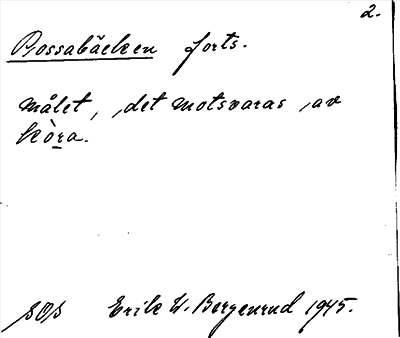 2.
Bossabäcken forts.
målet, det motsvaras av
kòra.
SOS Erik W. Bergenrud 1945.